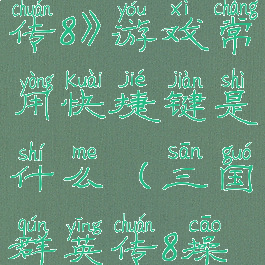 chuán yóu xì cháng
传8》游戏常
yòng kuài jié jiàn shì
用快捷键是
shí me sān guó
什么（三国
qún yīng chuán cāo
群英传8操